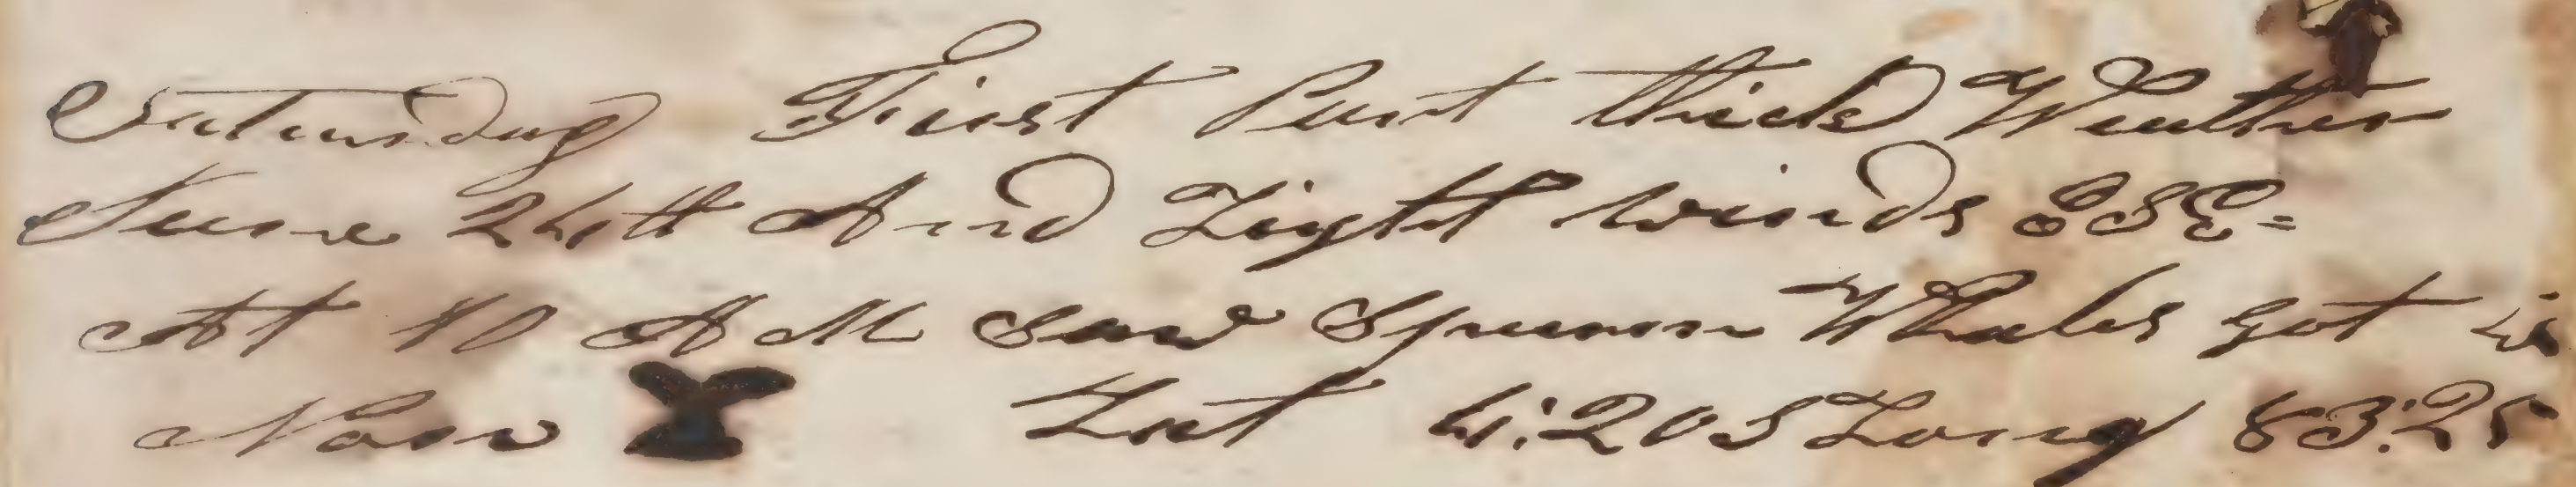 Saturday First Part thick Weather
June 24th And Light winds ESE=
At 10 A M Saw Sperm Whales got
Noon Lat 4:20 S Long 83:25